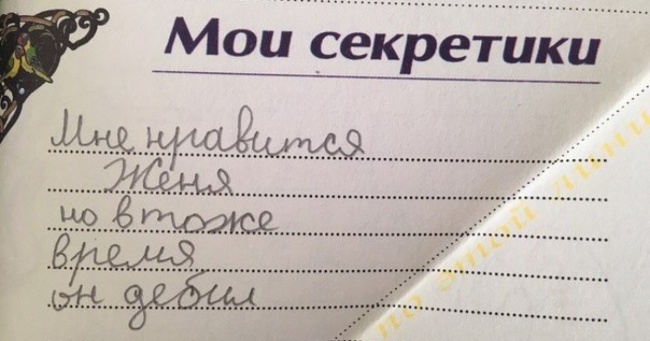 Мои секретики
Мне нравится
Женя
но в тоже
время
он дебил
по этой линии